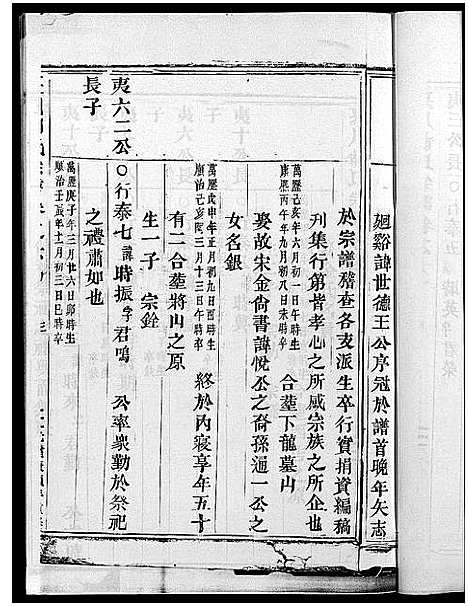 廻谿諱世德王公序冠於譜首晚年矢志
於宗譜稽查各支派生卒行實捐資編稿
刋集行第皆孝心之所感宗族之所企也
萬歷己亥年六月初一日午時生
康熙丙午年九月初八日未時卒
合塟下龍墓山
娶故宋金尚書諱悅公之裔孫通一公之
女名銀
萬歷戊申年正月初九日酉時生
順治己亥年三月十三日午時卒
終於內寢享年五十
有二合塟將山之原
生一子 宗銓
夷六二公〇行泰七諱時振字君鳴 公率衆勤於祭祀
長子
之禮肅如也
萬歷庚子年三月廿六日卯時生
順治壬辰年十一月初三日巳時卒